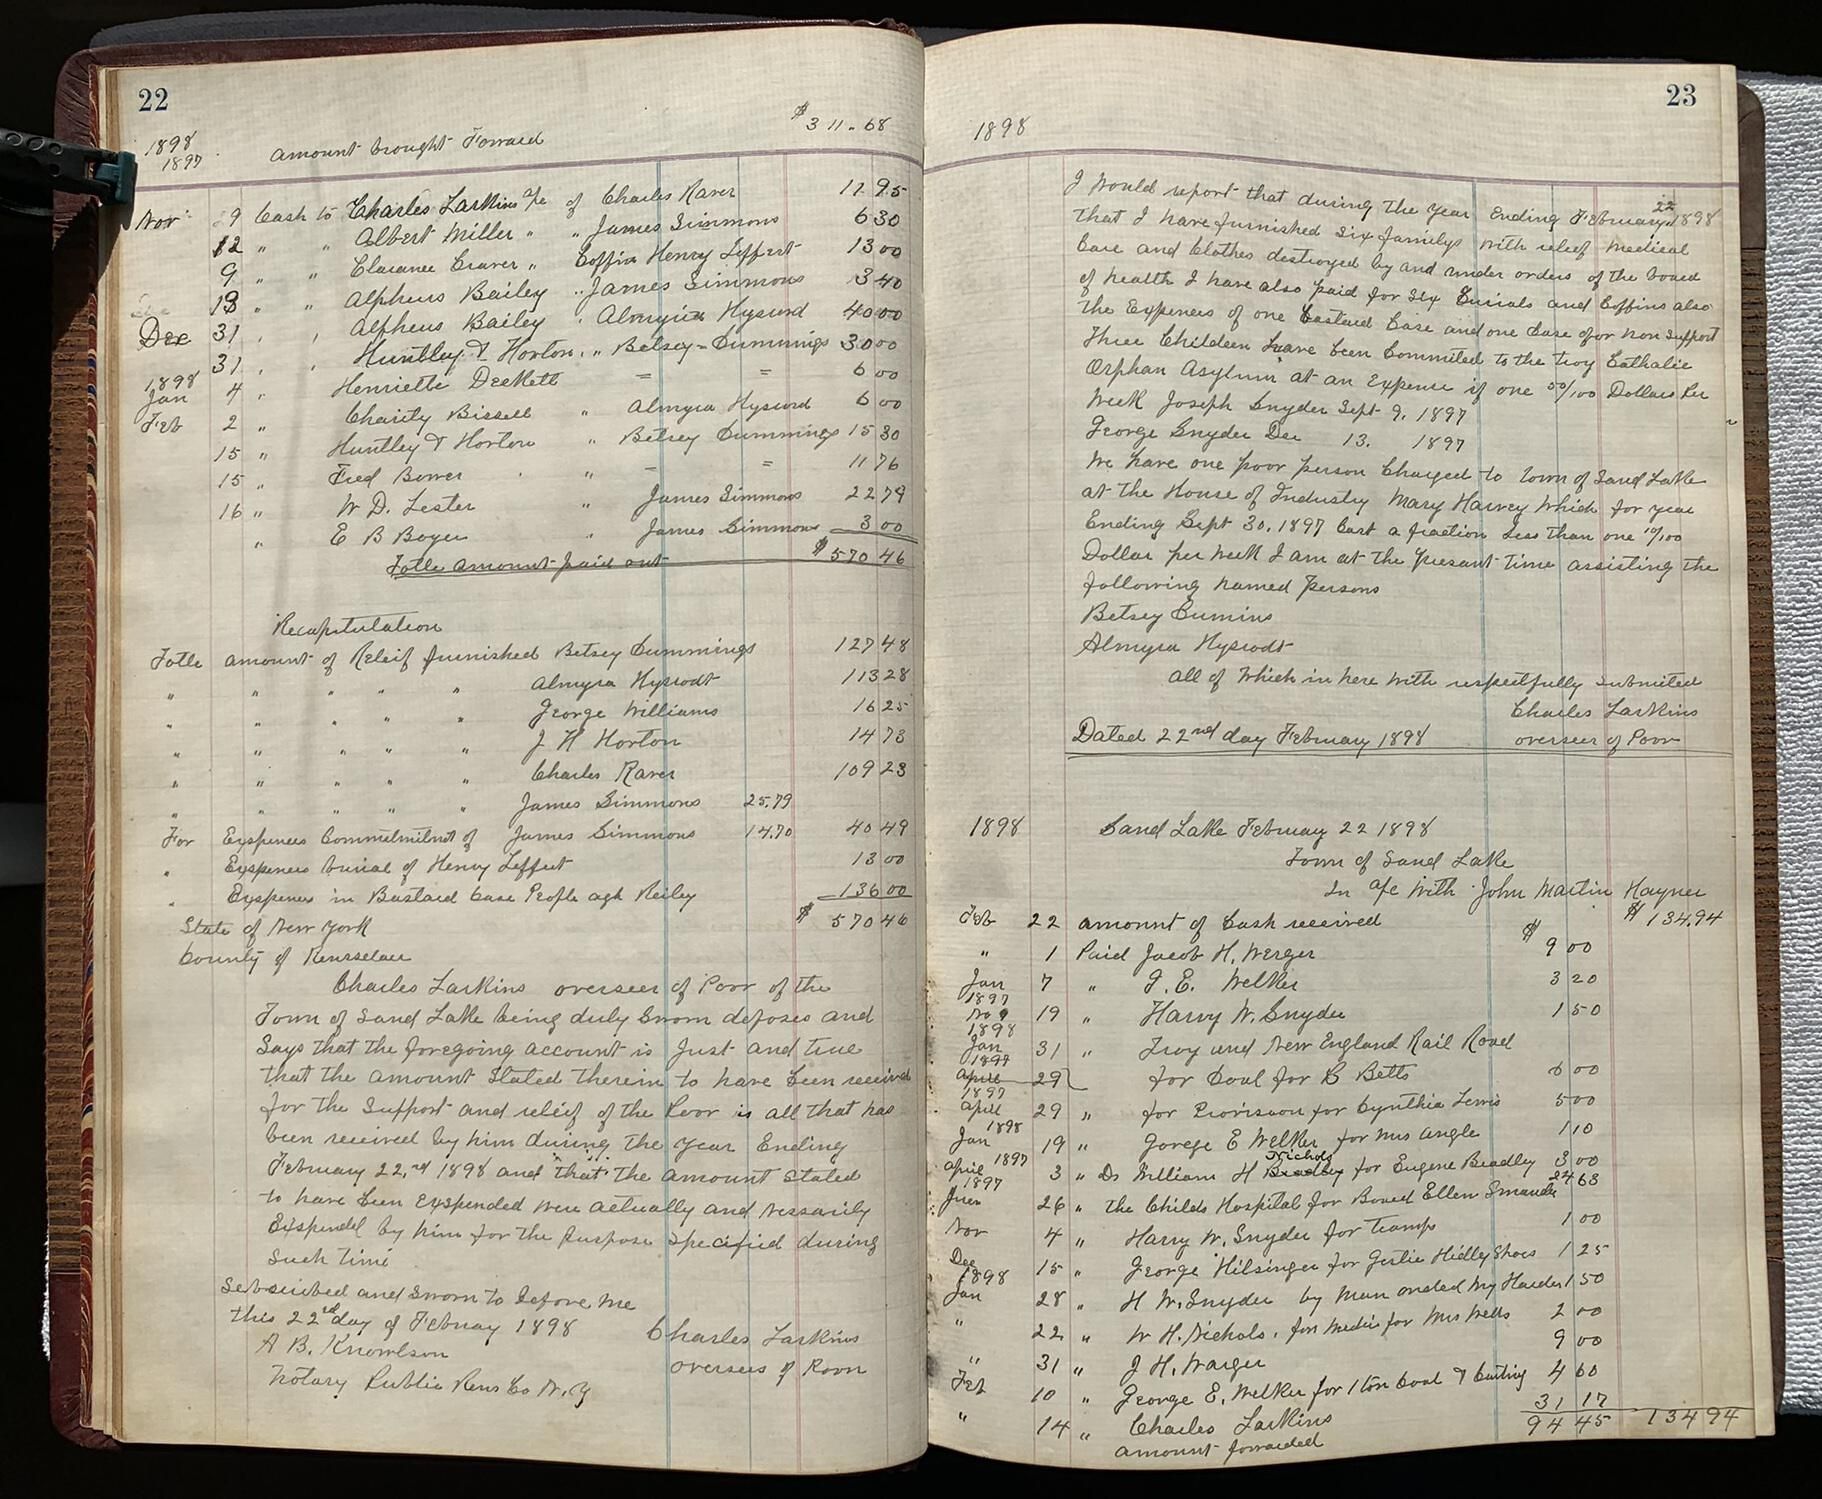 22
$311.68
1898
1897
amount brought Forward
Nov 29 Cash to Charles Larkins a/c of Charles Raver 17 95
12 " " Albert Miller " " James Simmons 6 30
9 " " Clarance Craver " Coffin Henry Leffert 13 00
18 " " Alpheus Bailey " James Simmons 3 40
Dec 31 " " Alpheus Bailey " Almyra Hysurd 40 00
31 " " Huntley & Horton " " Betsey Cummings 30 00
1898
Jan 4 " Henriette = = 6 00
Feb 2 " Charity Bissell " Almyra Hysurd 6 00
15 " Huntley & Horton " Betsey Cummings 15 30
15 " Fred Bower " = = 11 76
16 " W D. Lester " James Simmons 22 79
" E B Boyer " James Simmons 3 00
Totle amount paid out $570 46
Recapitulation
Totle amount of Releif furnished Betsey Cummings 127 48
" " " " " Almyra Hysrodt 113 28
" " " " " George Williams 16 25
" " " " " J H Horton 14 73
" " " " " Charles Raver 109 23
" " " " " James Simmons 25.79
For Expenses Commitment of James Simmons 14.70 40 49
" Expenses burial of Henry Leffert 13 00
" Expenses in Bastard Case People agh Reiley 136 00
State of New York $570 46
County of Rensselaer
Charles Larkins overseer of Poor of the
Town of Sand Lake being duly Sworn deposes and
Says that the foregoing account is Just and true
that the amount Stated therein to have been received
for the Support and releif of the Poor is all that has
been received by him during the year Ending
February 22,nd 1898 and that the amount Stated
to have been expended were actually and Nessarily
Expended by him for the Purpose Specified during
Such time
Subscribed and Sworn to before me
this 22nd day of Februay 1898 Charles Larkins
A B. Knowlson overseer of Poor
Notary Public Rens Co N.Y
23
1898
I Would report that during the year Ending February 22 1898
that I have furnished Six familys With releif Medical
Care and Clothes destroyed by and under orders of the board
of health I have also paid for Six burials and Coffins also
the Expences of one bastard Case and one Case for non Support
three Children have been Commited to the troy Catholic
Orphan Asylum at an Expense of one 50/100 Dollars Per
Week Joseph Snyder Sept 9. 1897
George Snyder Dec 13. 1897
We have one poor person Charged to town of Sand Lake
at the House of Industry Mary Harvey Which for year
Ending Sept 30. 1897 Cost a fraction Less than one 10/100
Dollar per Week I am at the Present time assisting the
following named Persons
Betsey Cumins
Almyra Hysrodt
all of Which in here With respectfully submited
Charles Larkins
Dated 22nd day February 1898 overseer of Poor
1898 Sand Lake February 22 1898
Town of Sand Lake
In a/c With John Martin Hayner
Feb 22 amount of Cash received $134.94
" 1 Paid Jacob H. Werger $9 00
Jan 7 " G. E. Welker 3 20
1897
Nov 19 " Harvy W. Snyder 1 50
1898
Jan 31 " Troy and New England Rail Road
1897
April 29 for Coal for B Betts 6 00
1897
April 29 " for Provision for Cynthia Lewis 5 00
1898
Jan 19 " Gorege E Welker for Mrs Angle 1 10
1897
April 3 " Dr William H Nichols Bradley for Eugene Bradley 3 00
1897
June 26 " the Childs Hospital for Board Ellen 24 63
Nov 4 " Harry W. Snyder for tramps 1 00
Dec 15 " George Hilsinger for Hidley Shoes 1 25
1898
Jan 28 " H W. Snyder by Man 1 50
" 22 " W H. Nichols. for Medic for Mrs Wells 2 00
" 31 " J H. Warger 9 00
Feb 10 " George E. Welker for 1 ton Coal & Carting 4 60
" 14 " Charles Larkins 31 17
amount forwarded 94 45 134 94